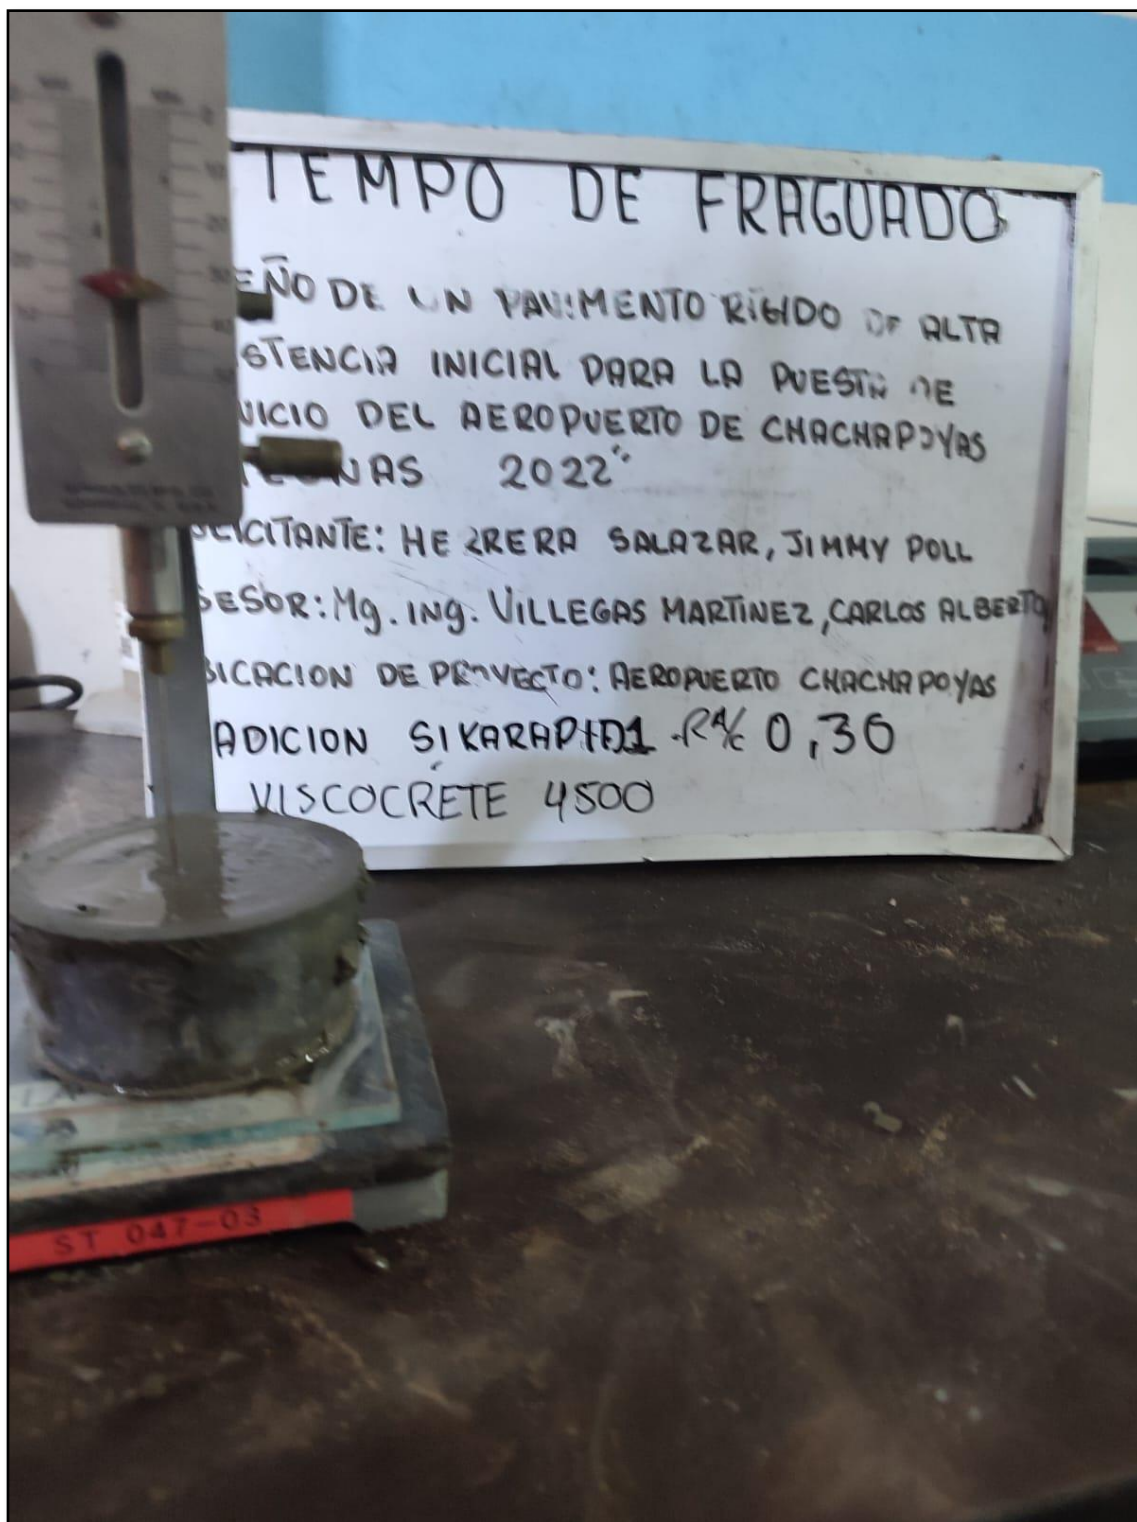 TEMPO DE FRAGUADO
EÑO DE UN PAVIMENTO RIGIDO DE ALTA
STENCIA INICIAL PARA LA PUESTA DE
VICIO DEL AEROPUERTO DE CHACHAPOYAS
NAS 2022"
LICITANTE: HERRERA SALAZAR, JIMMY POLL
SESOR: Mg. ING. VILLEGAS MARTINEZ, CARLOS ALBERTO
BICACION DE PROYECTO: AEROPUERTO CHACHAPOYAS
ADICION SIKARAPID1 -RA/C 0,36
VISCOCRETE 4500
ST 047-03